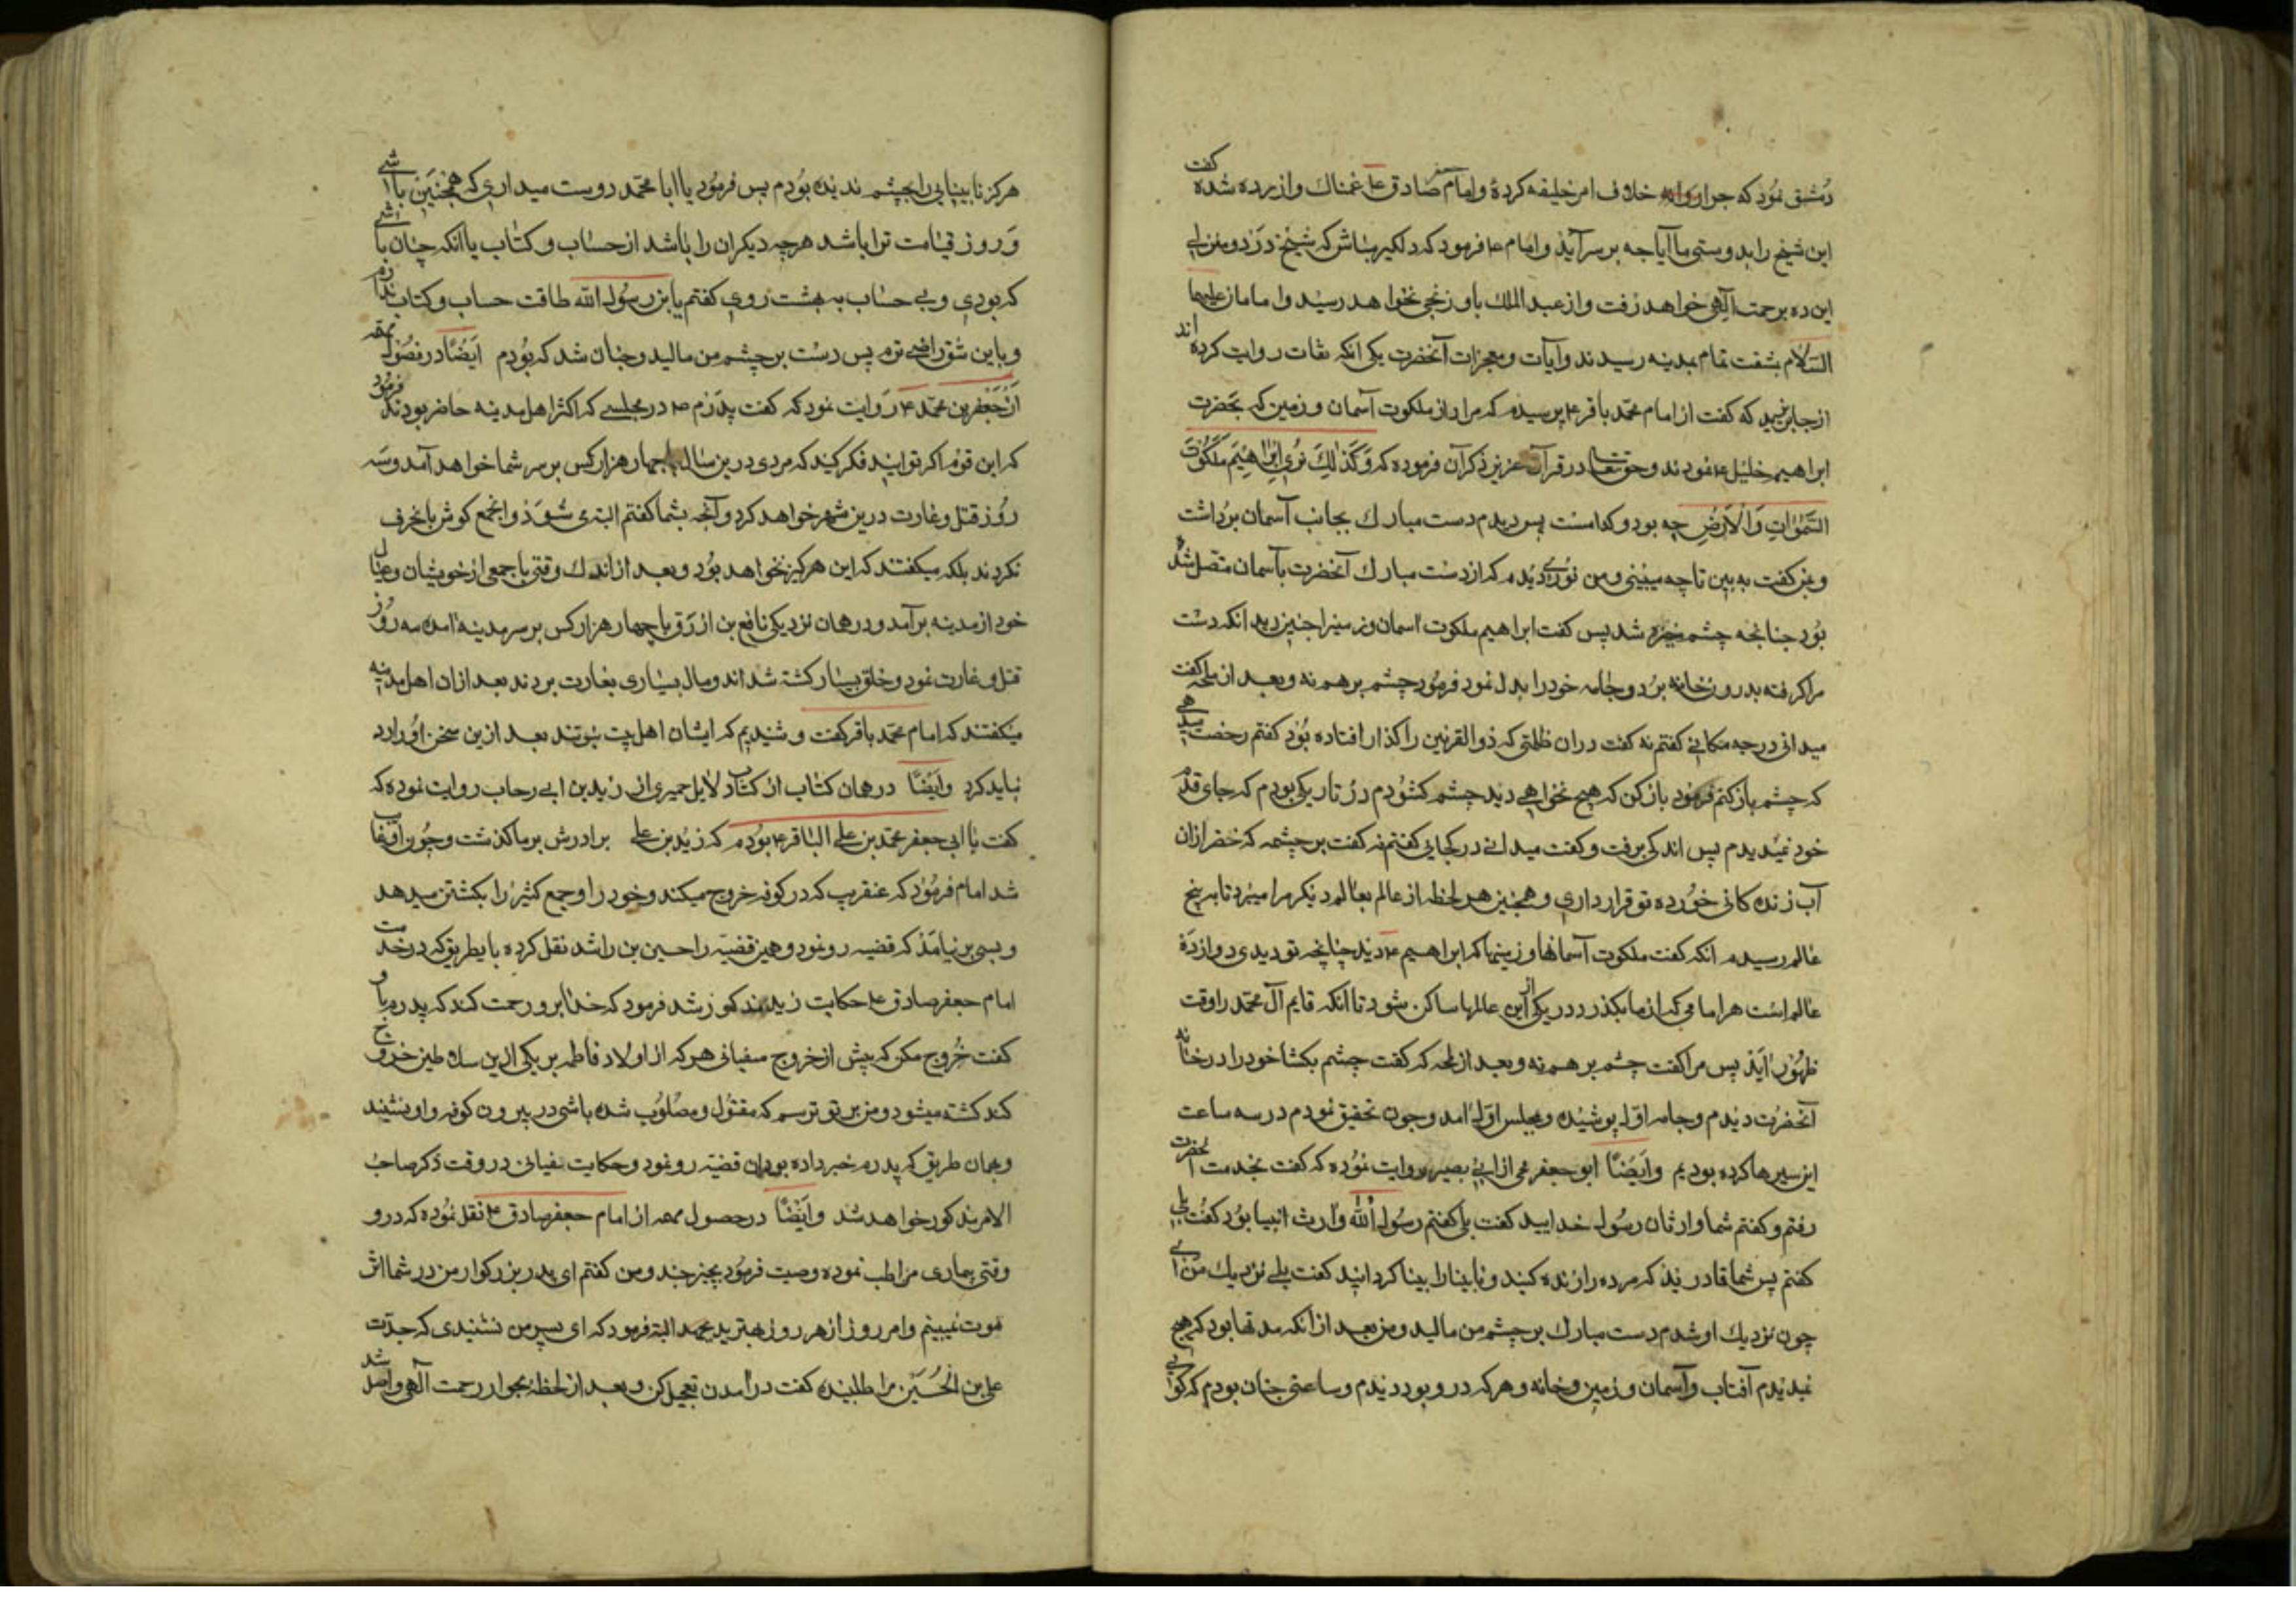 دمشق نمود که چرا روانه خلاف امر خلیفه کردهٔ وامام جعفر صادق ع غمناك وازرده شده کفت
این شیخ را بدوستی ما آیا چه بر سر آید وامام ع فرمود که دلکیر مباش که شیخ در دو منزلے
این ده برحمت آلهی خواهد رفت وازعبدالملك باو رنجی نخواهد رسید وامامان علیهما
السلام بشفت تمام بمدینه رسیدند وآیات ومعجزات آنحضرت یکی انکه ثقات روایت کرده اند
ازجابر بن یزید که کفت از امام محمّد باقر ع پرسیدم که مراد از ملکوت آسمان وزمین که بحضرت
ابراهیم خلیل ع نمودند وحق تعالی درقرآن عزیز ذکر آن فرموده که وَکَذٰلِكَ نُرِی اِبْرٰاهِیْمَ مَلَکُوْتَ
السَّمٰوٰاتِ وَالْاَرْضِ چه بود وکدامست پس دیدم دست مبارك بجانب آسمان برداشت
وبمن کفت به بین تا چه میبینی ومن نوری دیدم که ازدست مبارك آنحضرت بآسمان متصل شده
بود چنانچه چشم خیره شد پس کفت ابراهیم ملکوت اسمان وزمینرا چنین دید انکه دست
مراکرفته بدرون خانه برد وجامه خودرا بدل نمود فرمود چشم برهم نه وبعد از لمحه کفت
میدانی درچه مکانی کفتم نه کفت دران ظلمتی که ذوالقرنین را کذار افتاده بود کفتم رخصت میدهی
که چشم بازکنم فرمود بازکن که هیچ نخواهی دید چشم کشودم در تاریکی بودم که جای قدم
خود نمیدیدم پس اندکی برفت وکفت میدانے در کجایی کفتم نه کفت بر چشمه که خضر ازان
آب زنده کانی خورده تو قرار داری وهمچنین هر لحظه از عالم بعالم دیکر مرا میبرد تا به پنج
عالم رسیدم انکه کفت ملکوت آسمانها وزمینها که ابراهیم ع دید چنانچه تو دیدی دوازده
عالم است هر امامی که از ما بکذرد در یکی از این عالمها ساکن شود تا انکه قایم آل محمّد را وقت
ظهور اید پس مرا کفت چشم برهم نه وبعد از لمحه که کفت چشم بکشا خودرا در خانه
آنحضرت دیدم وجامه اوّل پوشیده وبمجلس اوّل امد وچون تحقیق نمودم در سه ساعت
این سیرها کرده بودیم وایضًا ابوجعفر می از ابی بصیر روایت نموده که کفت بخدمت آنحضرت
رفتم وکفتم شما وارثان رسول خدایید کفت بلی کفتم رسول الله وارث انبیا بود کفت بلی
کفتم پس شما قادرید که مرده را زنده کنید ونابینا را بینا کردانید کفت بلے نزدیك من آی
چون نزدیك او شدم دست مبارك بر چشم من مالید ومن بعد از انکه مدتها بود که هیچ
نمیدیدم آفتاب وآسمان وزمین وخانه وهرکه درو بود دیدم وساعتی چنان بودم که کوایی
هرکز نابینایی را بچشم ندیده بودم پس فرمود یا ابا محمّد دوست میداری که همچنین باشے
وروز قیامت ترا باشد هرچه دیکران را باشد ازحساب وکتاب یا انکه چنان باشے
که بودی وبے حساب به بهشت روی کفتم یا بن رسول الله طاقت حساب وکتاب ندارم
وباین شق راضے ترم پس دست بر چشم من مالید وچنان شد که بودم ایضًا در فصول مهمه
از جعفر بن محمّد ع روایت نمود که کفت پدرم ع در مجلسے که اکثر اهل مدینه حاضر بودند فرمود
که این قوم اکر توانید فکر کنید که مردی درین سال با چهار هزار کس بر سر شما خواهد آمد وسه
روز قتل وغارت درین شهر خواهد کرد وآنچه بشما کفتم البته می شود وانجمع کوش بانحرف
نکردند بلکه میکفتند که این هرکز نخواهد بود وبعد از اندك وقتی با جمعی از خویشان وعیال
خود از مدینه برآمد ودر همان نزدیکی نافع بن ازرق با چهار هزار کس بر سر مدینه امده سه روز
قتل وغارت نمود وخلق بسیار کشته شداند ومال بسیاری بغارت بردند بعد ازان اهل مدینه
میکفتند که امام محمّد باقر کفت وشنیدیم که ایشان اهل بیت نبوتند بعد ازین سخن او را رد
نباید کرد وایضًا در همان کتاب از کتاب دلایل حمیری از زیدبن ابے رحاب روایت نموده که
کفت با ابی جعفر محمّد بن علی الباقر ع بودم که زید بن علی برادرش برما کذشت وچون او غایب
شد امام فرمود که عنقریب که در کوفه خروج میکند وخودرا وجمع کثیر را بکشتن میدهد
وبسی برنیامد که قضیه رونمود وهمین قضیّه را حسین بن راشد نقل کرده باینطریق که در خدمت
امام جعفر صادق ع حکایت زید مذکور شد فرمود که خدا برو رحمت کند که پدرم باو
کفت خروج مکن که پیش از خروج سفیانی هرکه از اولاد فاطمه بر یکی ازین سلاطین خروج
کند کشته میشود ومن بر تو ترسم که مقتول ومصلوب شده باشی در بیرون کوفه واو نشنید
وبهمان طریق که پدرم خبر داده بود ان قضیّه رونمود وحکایت سفیانی در وقت ذکر صاحب
الامر مذکور خواهد شد وایضًا در حصول مهمه از امام جعفر صادق ع نقل نموده که در و
وقتی بیماری مرا طلب نموده وصیت فرمود بچیز چند ومن کفتم ای پدر بزرکوار من در شما اثر
موت نمیبینم وامروز از هر روز بهترید البته فرمود که ای پسر من نشنیدی که جدّت
علی بن الحُسَیْن مرا طلبیده کفت در امدن تعجیل کن وبعد از لحظهٔ بجوار رحمت آلهی واصل شد